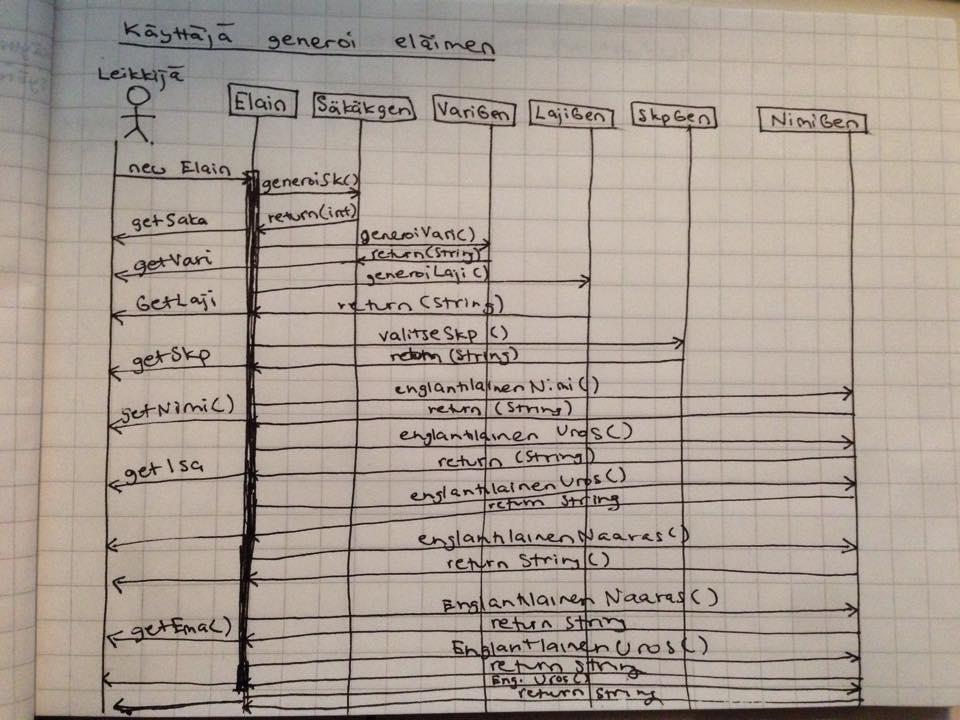 Käyttäjä generoi eläimen
Leikkijä
Elain
Säkäkgen
VariGen
LajiGen
SkpGen
NimiGen
new Elain
generoiSk()
return(int)
getSaka
generoiVari()
return(String)
getVari
generoiLaji()
GetLaji
return (String)
valitseSkp ()
return (String)
getSkp
englantilainen Nimi()
return (String)
getNimi()
englantilainen Uros()
return (String)
getIsa
englantilainen Uros()
return String
englantilainen Naaras()
return String()
Englantilainen Naaras()
return String
getEma()
Englantilainen Uros()
return String
Eng. Uros()
return String